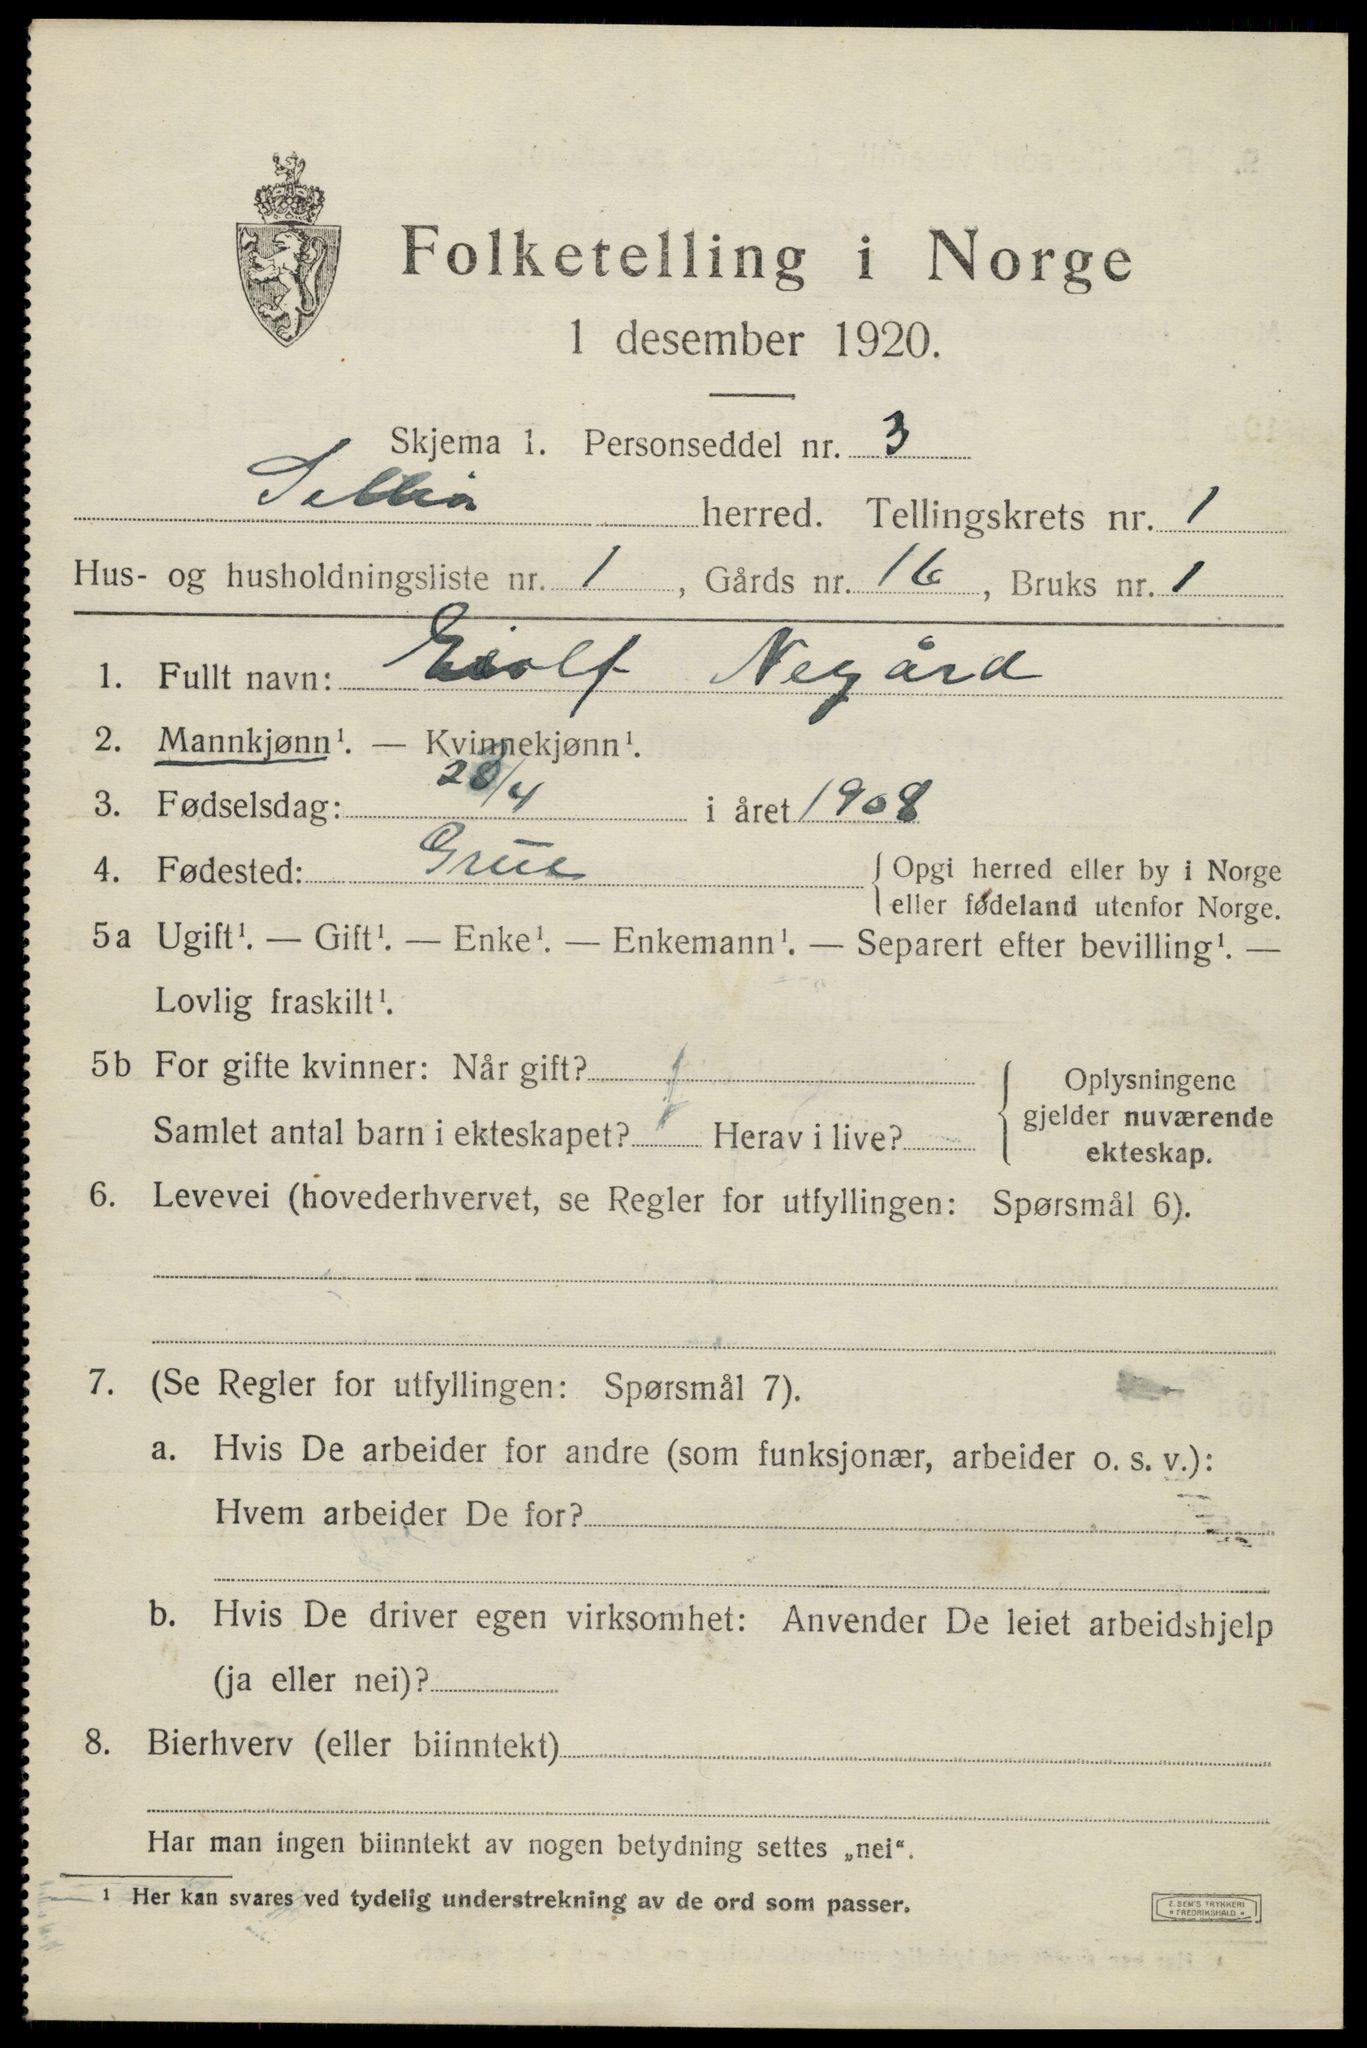 Folketelling i Norge
1 desember 1920.
Skjema 1. Personseddel nr. 3
herred. Tellingskrets nr. 1
Hus- og husholdningsliste nr. 1, Gårds nr. 16, Bruks nr. 1
1. Fullt navn: Eiolf Negård
2. Mannkjønn¹. — Kvinnekjønn¹.
3. Fødselsdag: 28/4 i året 1908
4. Fødested: Grue { Opgi herred eller by i Norge
eller fødeland utenfor Norge.
5a Ugift¹. — Gift¹. — Enke¹. — Enkemann¹. — Separert efter bevilling¹. —
Lovlig fraskilt¹.
5b For gifte kvinner: Når gift?
Samlet antal barn i ekteskapet? Herav i live?
{ Oplysningene
gjelder nuværende
ekteskap.
6. Levevei (hovederhvervet, se Regler for utfyllingen: Spørsmål 6).
7. (Se Regler for utfyllingen: Spørsmål 7).
a. Hvis De arbeider for andre (som funksjonær, arbeider o. s. v.):
Hvem arbeider De for?
b. Hvis De driver egen virksomhet: Anvender De leiet arbeidshjelp
(ja eller nei)?
8. Bierhverv (eller biinntekt)
Har man ingen biinntekt av nogen betydning settes „nei“.
¹ Her kan svares ved tydelig understrekning av de ord som passer.
E. SEM'S TRYKKERI
* FREDRIKSHALD *